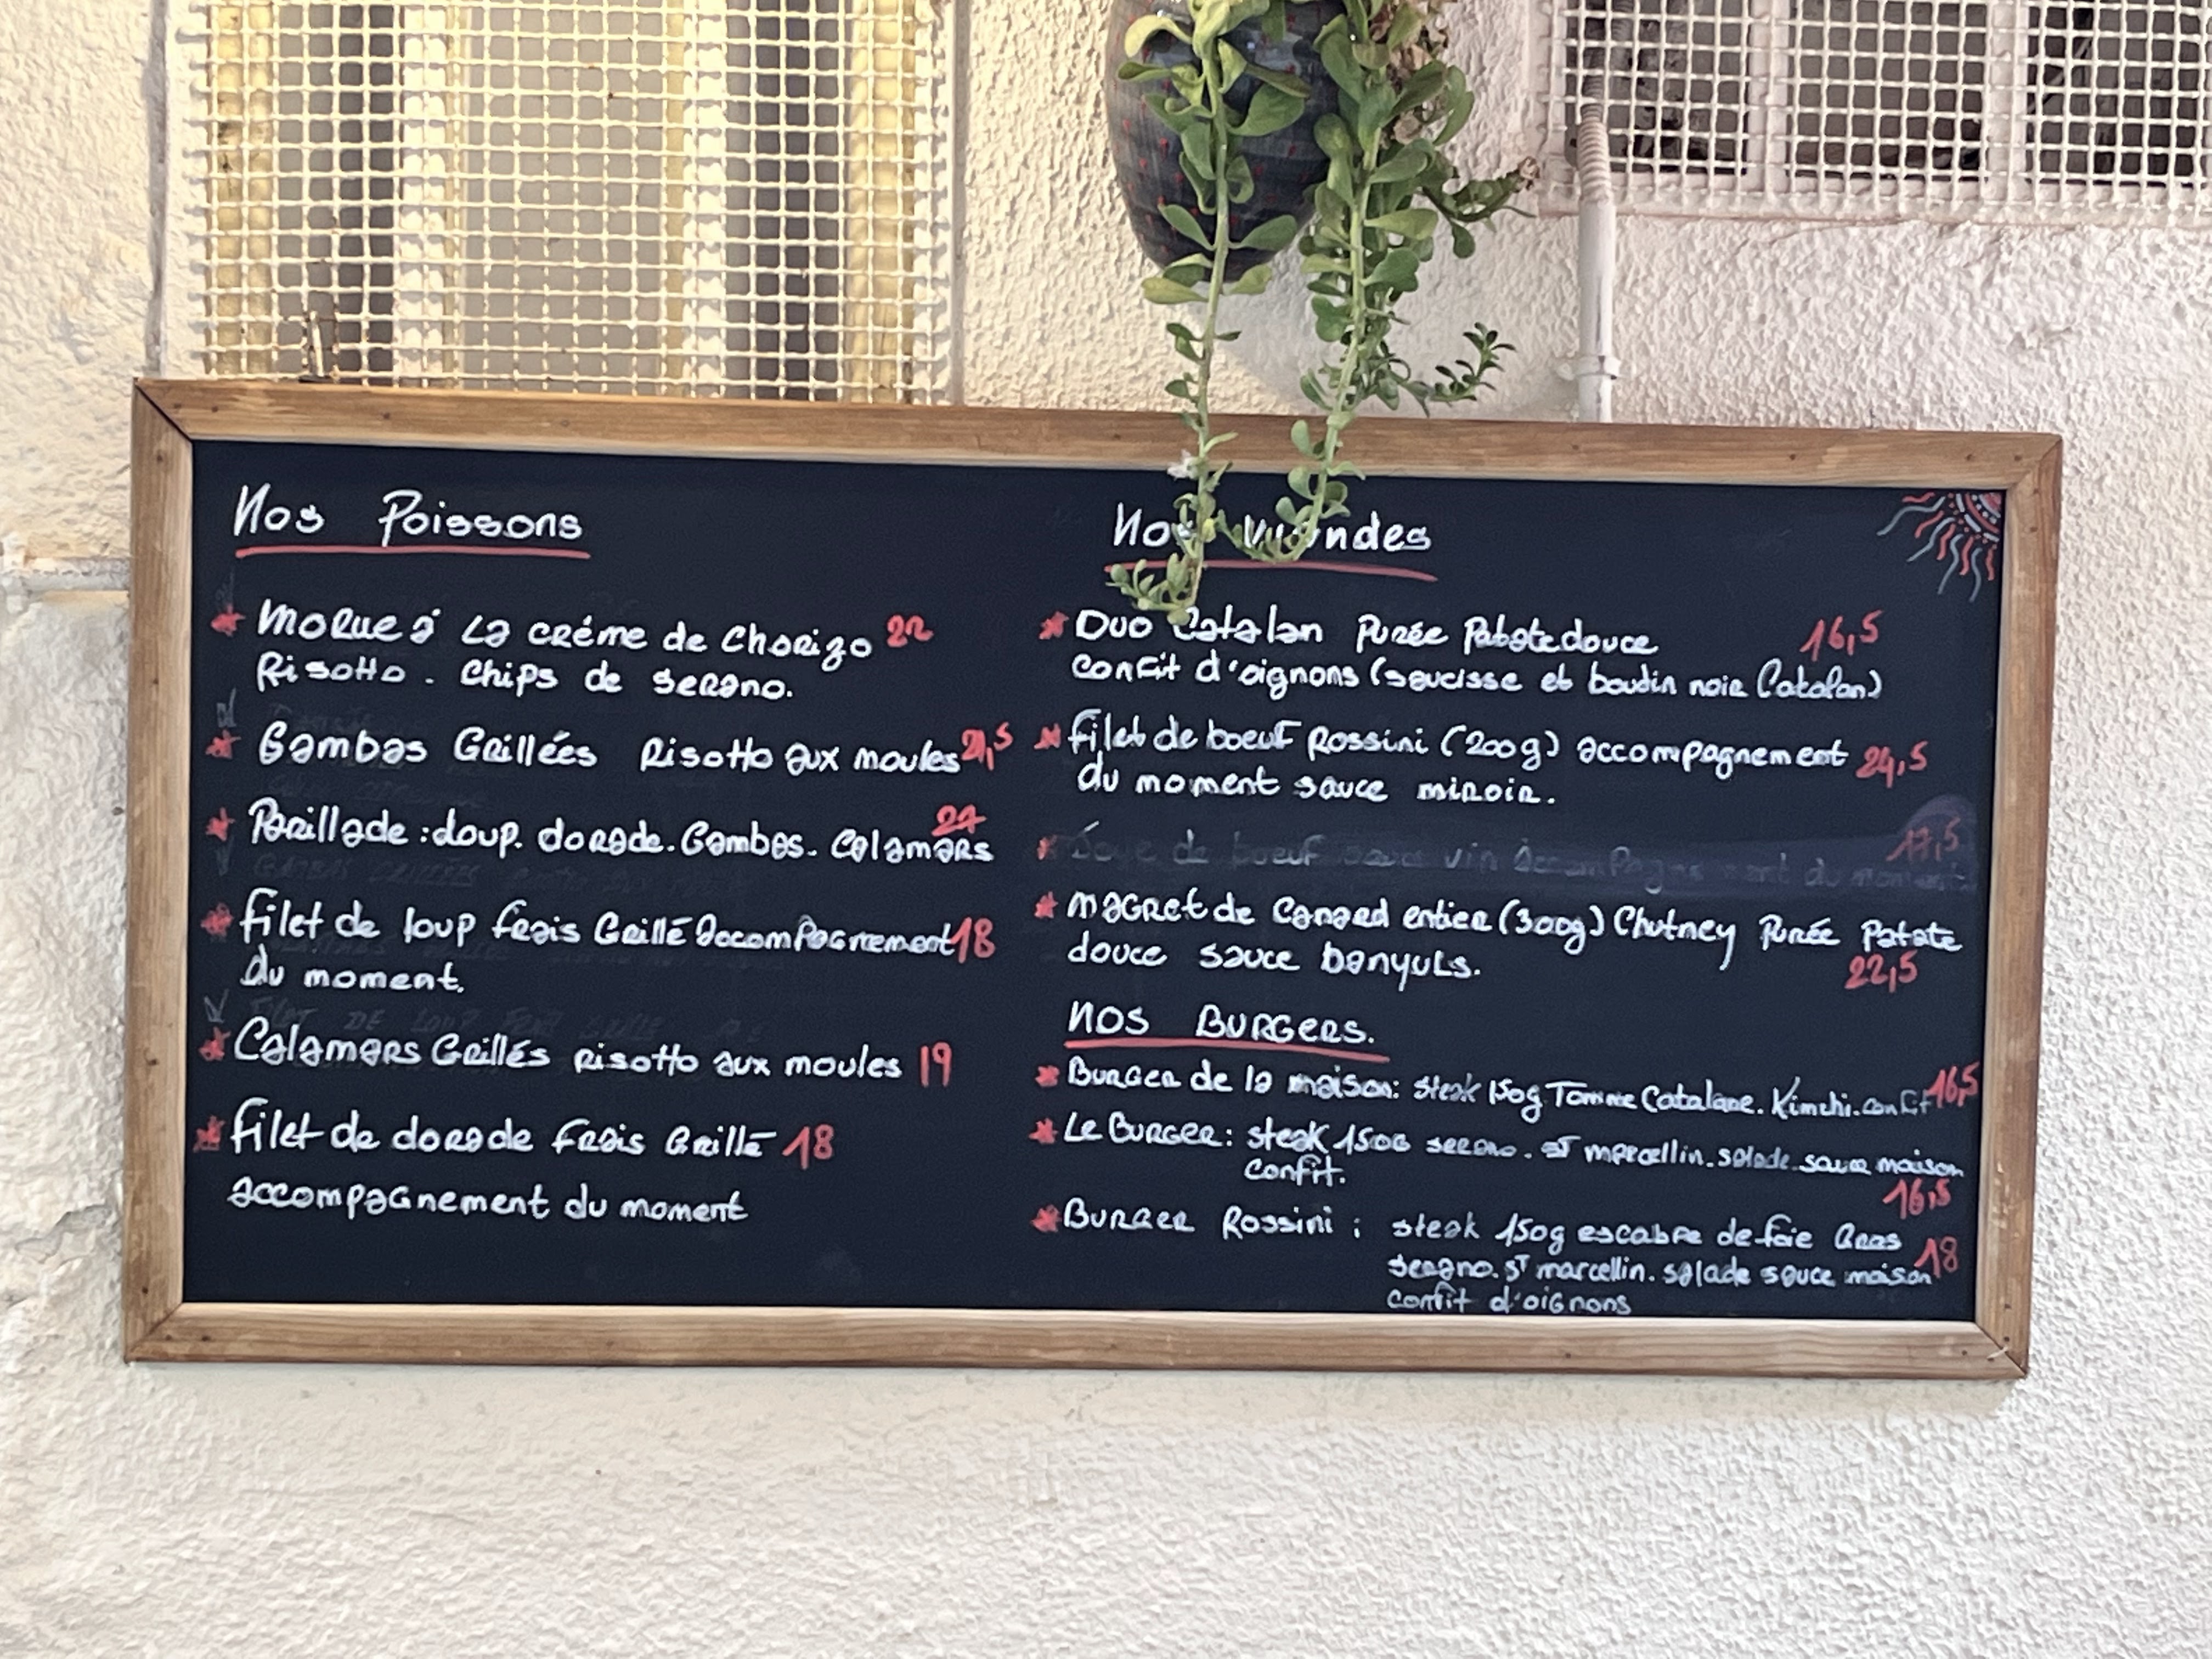 Nos Poissons
Morue à la créme de Chorizo 22
Risotto. Chips de serano.
Gambas Grillées Risotto aux moules 21,5
Parillade: loup. dorade. Gambas. Calamars 27
filet de loup frais Grillé Accompagnement 18
du moment.
Calamars Grillés risotto aux moules 19
filet de dorade frais Grillé 18
accompagnement du moment
Nos viandes
Duo Catalan Purée Patate douce 16,5
confit d'oignons (saucisse et boudin noir Catalan)
filet de boeuf Rossini (200g) accompagnement 24,5
du moment sauce miroir.
de boeuf sauce vin 17,5
magret de Canard entier (300g) Chutney Purée Patate
douce sauce banyuls. 22,5
NOS BURGERS.
Burger de la maison: steak 150g Tomme Catalane. Kimchi. confit 16,5
Le Burger: steak 150G serano. ST marcellin. salade. sauce maison
confit. 16,5
Burger Rossini: steak 150g escalope de foie Gras
serano. ST marcellin. salade sauce maison 18
confit d'oignons